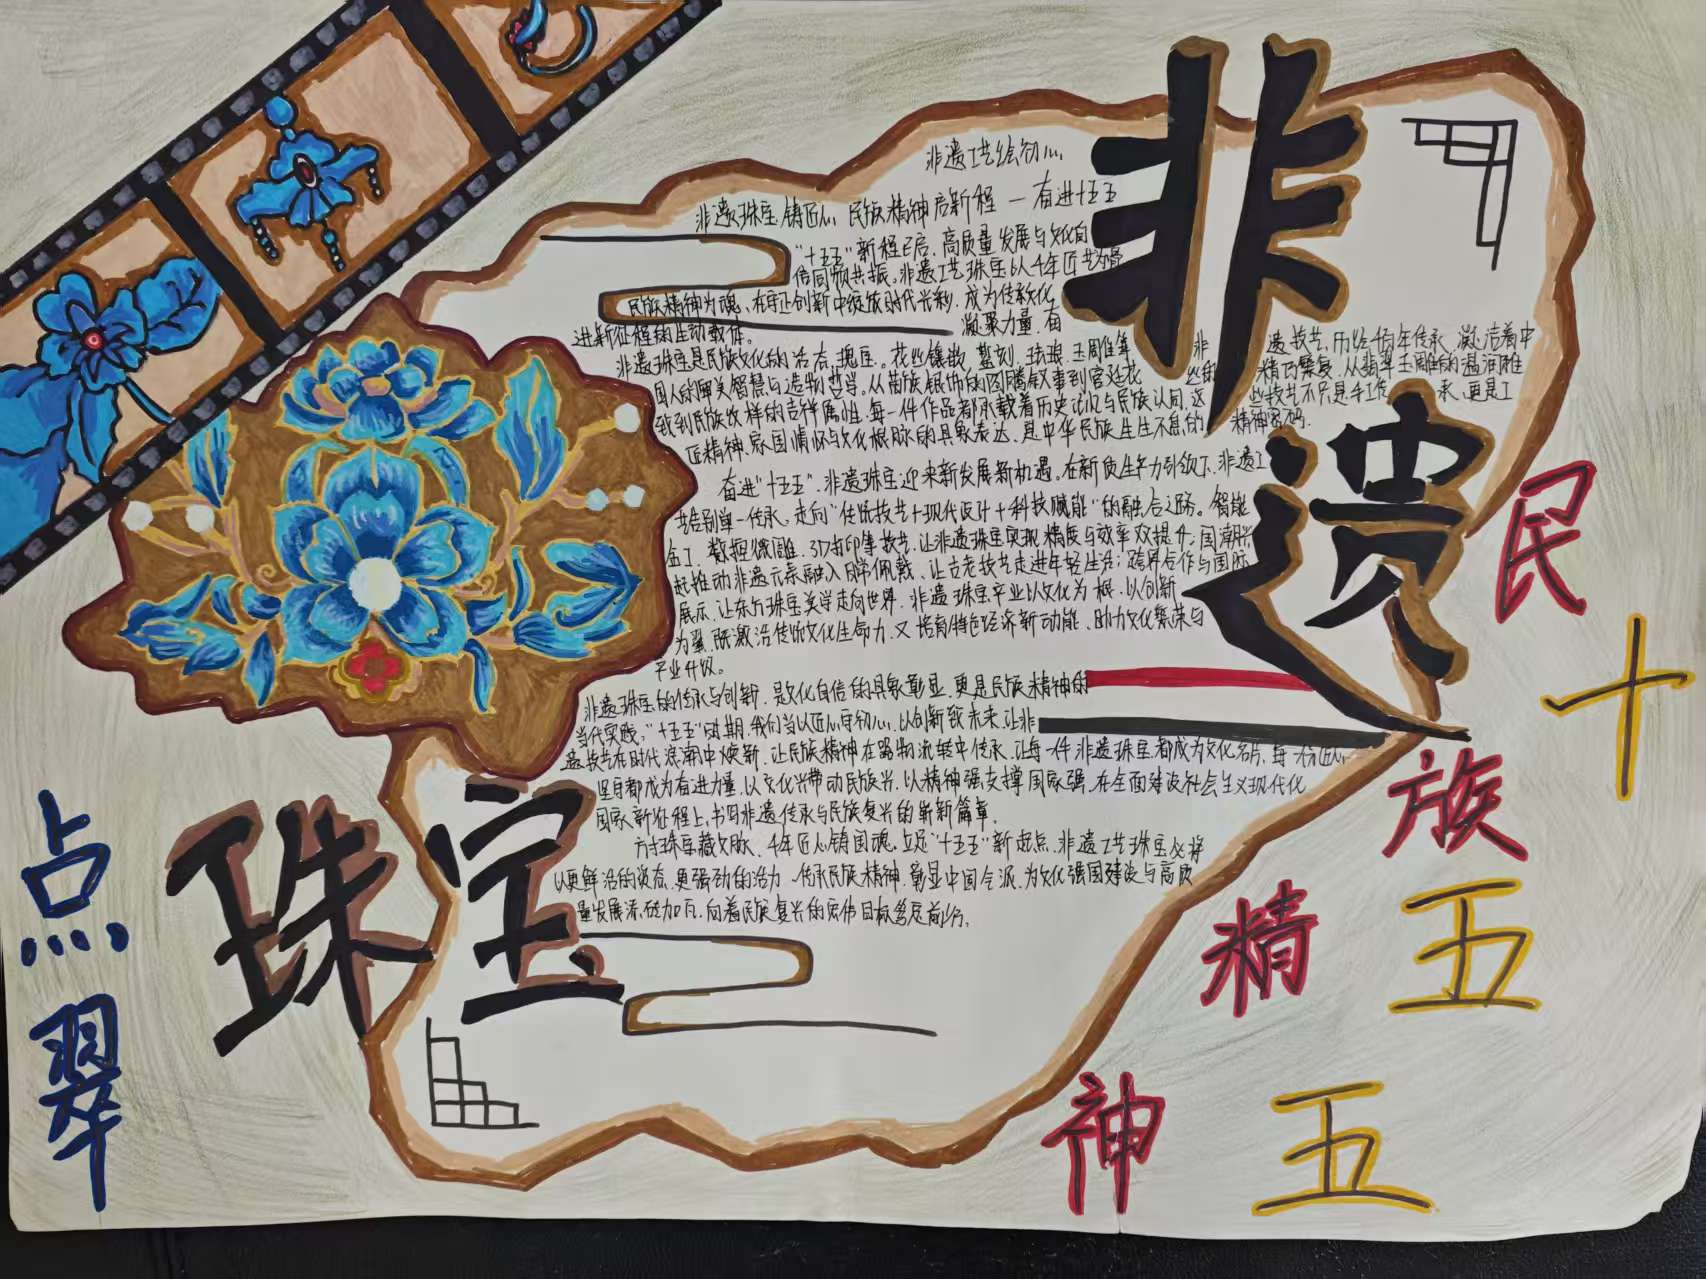 非遗工艺绘初心
非遗珠宝铸匠心 民族精神启新程 — 奋进十五五
“十五五”新程已启,高质量发展与文化自
信同频共振。非遗工艺珠宝以千年匠艺为骨
民族精神为魂,在守正创新中绽放时代光彩,成为传承文化
凝聚力量,奋
进新征程的生动载体。
非遗珠宝是民族文化的活态瑰宝。花丝镶嵌、錾刻、珐琅、玉雕等非遗技艺,历经千年传承,凝结着中
国人的审美智慧与造物哲学。从苗族银饰的图腾叙事到宫廷花丝的精巧繁复,从翡翠玉雕的温润雅
致到民族纹样的吉祥寓意,每一件作品都承载着历史记忆与民族认同,这些技艺不只是手工传承,更是工
匠精神、家国情怀与文化根脉的具象表达,是中华民族生生不息的精神密码.
奋进“十五五”,非遗珠宝迎来新发展新机遇。在新质生产力引领下,非遗工
艺告别单一传承,走向“传统技艺+现代设计+科技赋能”的融合之路。智能
金工、数控微雕、3D打印等技艺,让非遗珠宝实现精度与效率双提升;国潮兴
起推动非遗元素融入日常佩戴、让古老技艺走进年轻生活;跨界合作与国际
展示,让东方珠宝美学走向世界.非遗珠宝产业以文化为根,以创新
为翼,既激活传统文化生命力,又培育特色经济新动能,助力文化繁荣与
产业升级。
非遗珠宝的传承与创新,是文化自信的具象彰显,更是民族精神的
当代实践。“十五五”时期,我们当以匠心守初心,以创新致未来,让非
遗技艺在时代浪潮中焕新,让民族精神在器物流转中传承,让每一件非遗珠宝都成为文化名片,每一份匠心
坚守都成为奋进力量,以文化兴带动民族兴,以精神强支撑国家强,在全面建设社会主义现代化
国家新征程上,书写非遗传承与民族复兴的崭新篇章.
方寸珠宝藏文脉,千年匠心铸国魂,立足“十五五”新起点,非遗工艺珠宝必将
以更鲜活的姿态,更强劲的活力,传承民族精神,彰显中国气派,为文化强国建设与高质
量发展添砖加瓦,向着民族复兴的宏伟目标笃定前行。
非遗
珠宝
点翠
民族精神
十五五